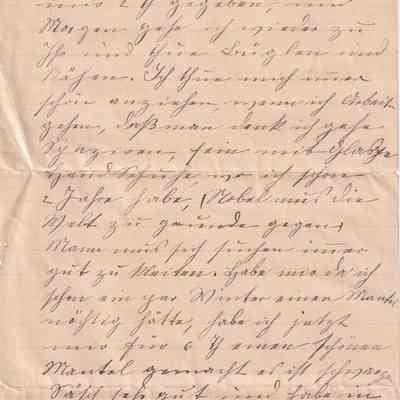 mir 2 gegeben, und
Morgen gehe ich wieder zu
Ihr und thue Büglen und
Nähen. Ich thue mich immer
schön anziehen, wenn ich Arbeit
gehen, daß man denk ich gehe
Spaziren, fein mit
Hand Schuhe, wo ich schon
2 Jahre habe, (Nobel mus die
Welt zu grunde gegen)
Mann mus sich suchen immer
gut zu kleiten. Habe mir da ich
schon ein par Winter einen Mantel
nöthig hätte, habe ich jetzt
mir für 6 einen schönen
Mantel gemacht es ist schwarze
sehr gut und habe in